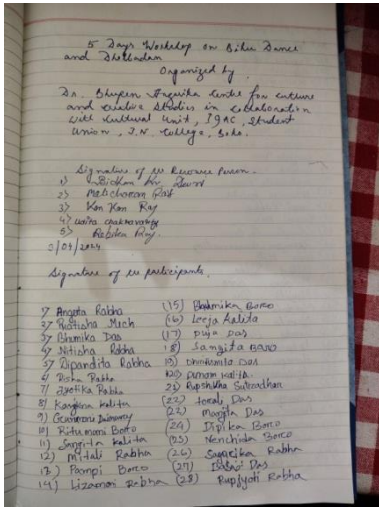 5 Days Workshop on Bihu Dance
and Dhulbadan
Organized by
Dr. Bhupen Hazarika Centre for culture
and creative Studies in collaboration
with cultural Unit, IQAC, Student
Union, J.N. College, Boko.
Signature of the Resource Person.
1) Kr
2) Malicharan Rabha
3) Kan Kan Raj
4) chakravarty
5) Rabika Raj
3/04/2024
Signature of the participants.
1) Angata Rabha
2) Mech
3) Bhumika Das
4) Nitisha Rabha
5) Dipandita Rabha
6) Disha Rabha
7) Jyotika Rabha
8) Kangkana kalita
9)
10) Ritumani Boro
11) Sangita kalita
12) Mitali Rabha
13) Pampi Boro
14) Lizamoni Rabha
(15) Bhumika Boro
(16) Leeja Kalita
(17) Puja Das
18) Sangita Boro
19) Das
20) Punam kalita
21) Rupshikha Sutradhar
(22) Das
(22) Manjita Das
(24) Dipika Boro
(25) Nenchida Boro
(26) Sagarika Rabha
(27) Das
(28) Rupjyoti Rabha